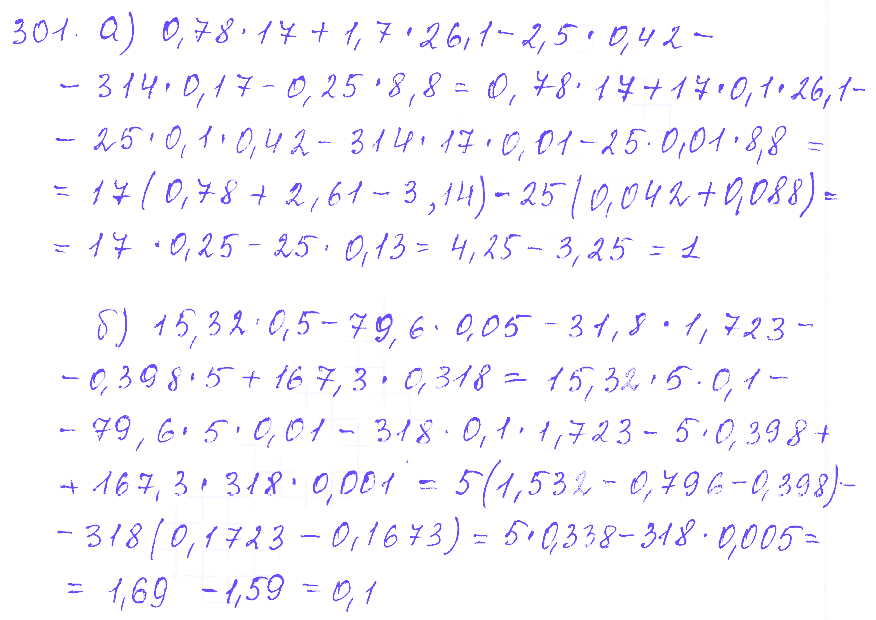 301. а) 0,78·17+1,7·26,1-2,5·0,42-
-314·0,17-0,25·8,8=0,78·17+17·0,1·26,1-
-25·0,1·0,42-314·17·0,01-25·0,01·8,8=
=17(0,78+2,61-3,14)-25(0,042+0,088)=
=17·0,25-25·0,13=4,25-3,25=1
б) 15,32·0,5-79,6·0,05-31,8·1,723-
-0,398·5+167,3·0,318=15,32·5·0,1-
-79,6·5·0,01-318·0,1·1,723-5·0,398+
+167,3·318·0,001=5(1,532-0,796-0,398)-
-318(0,1723-0,1673)=5·0,338-318·0,005=
=1,69-1,59=0,1